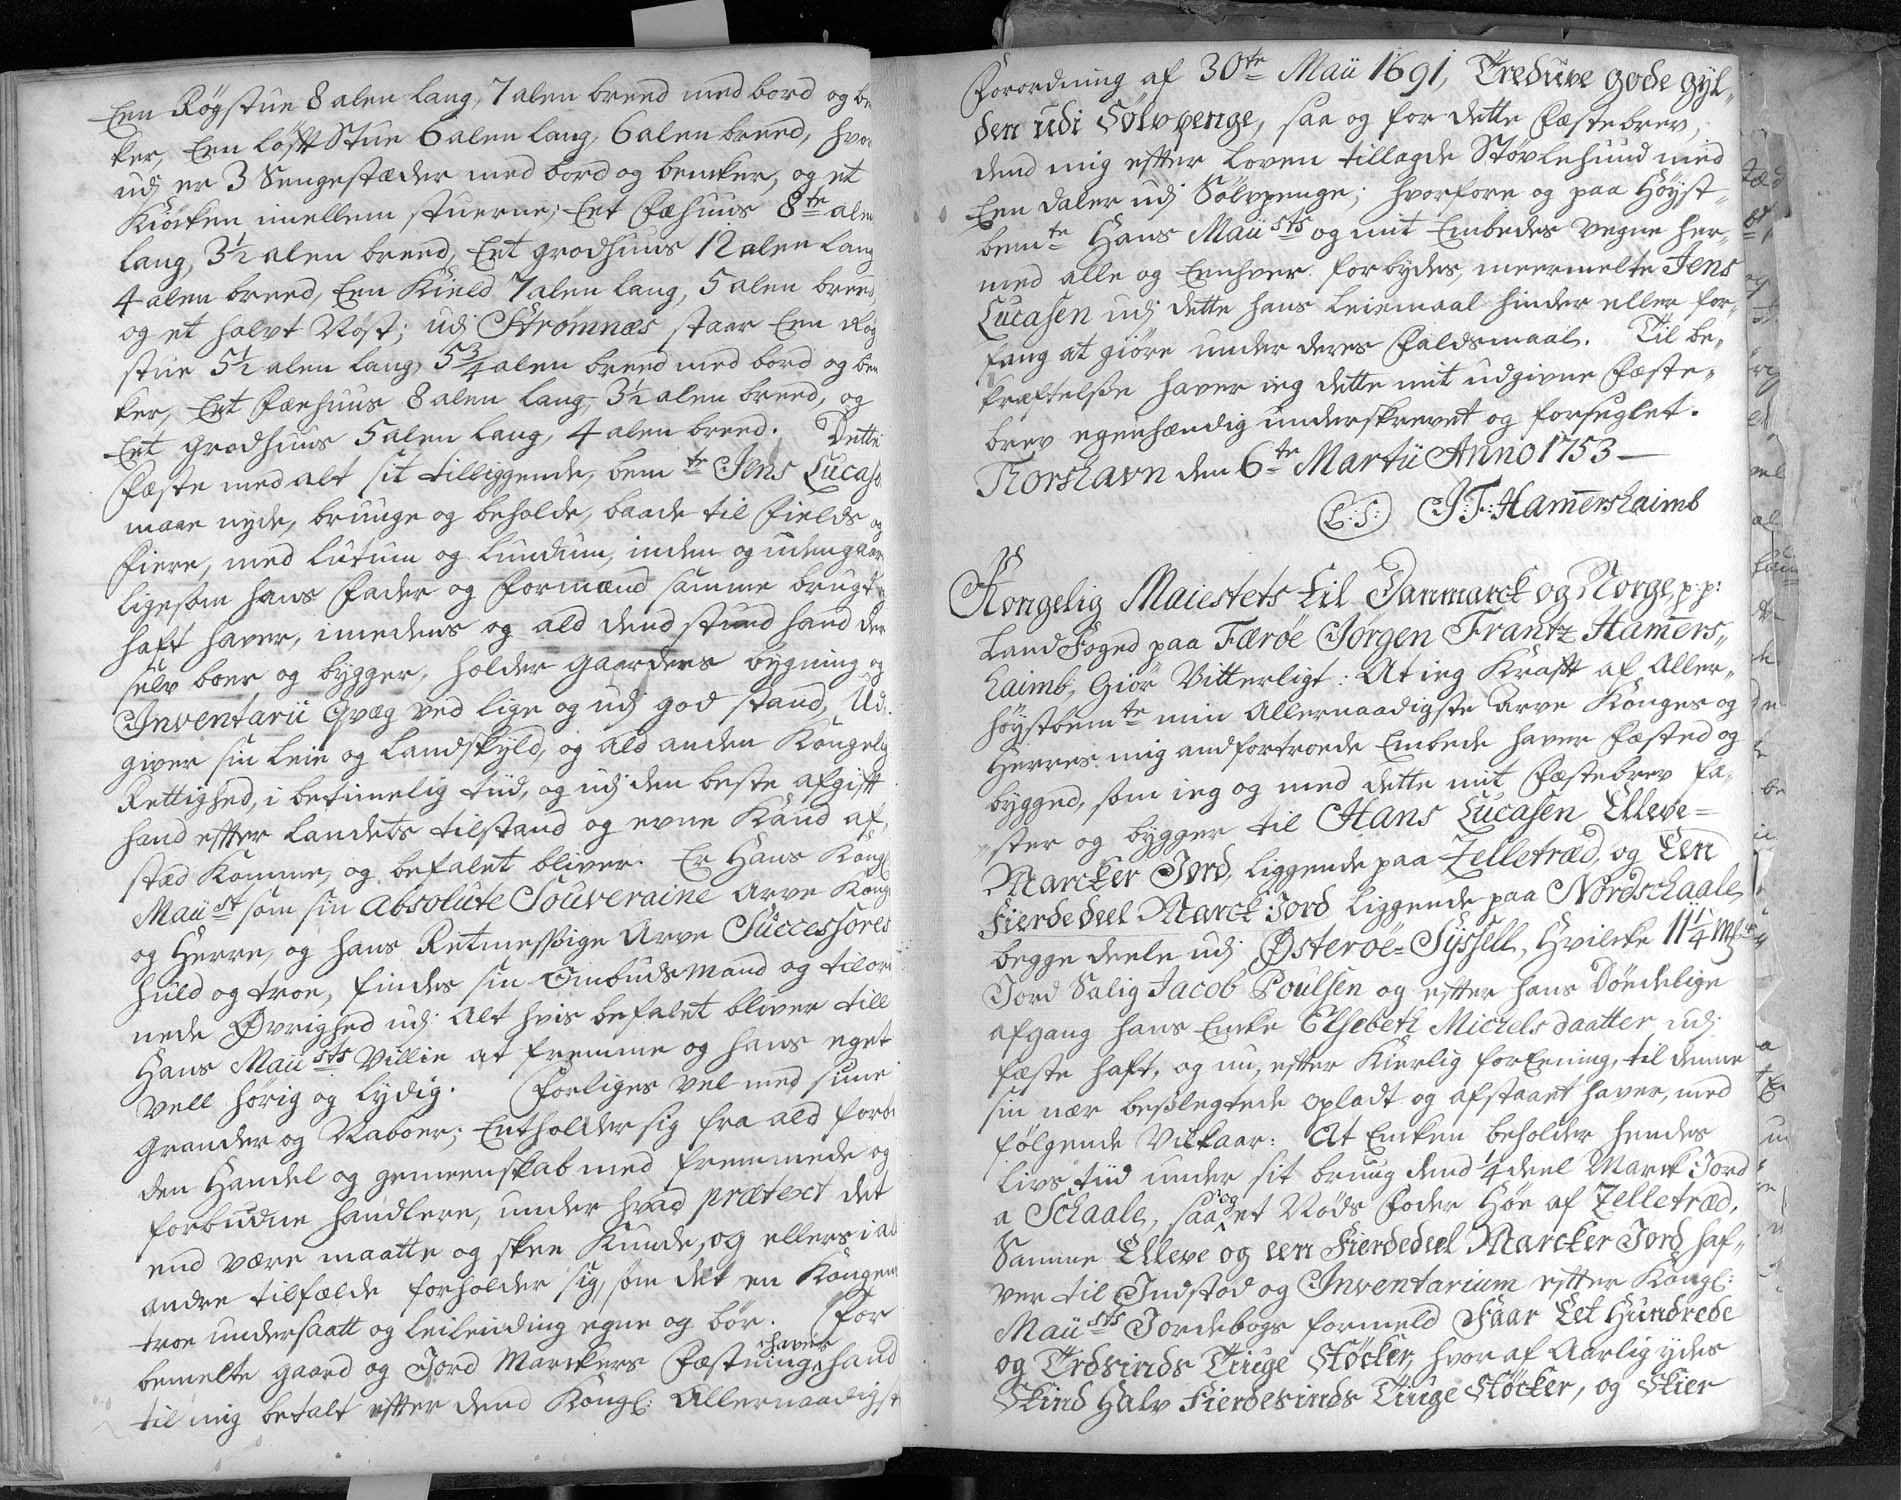 Een Røgstue 8 alen lang, 7 alen breed med bord og be
ker, Een løfft Stue 6 alen lang, 6 alen breed, hvor
udj er 3 Sengestæder med bord og bencker, og et
Kiøcken imellem stuerne; Eet Fæhuus 8te alen
lang, 3½ alen breed, Eet grodhuus 12 alen lang
4 alen breed, Een Kield 7 alen lang, 5 alen breed,
og et halvt Nøst; udj Strømnæs staar Een Røg
stue 5½ alen lang, 5¾ alen breed med bord og ben
ker, Eet Fæehuus 8 alen lang, 3½ alen breed, og
Eet grodhuus 5 alen lang, 4 alen breed. Dette
Fæste med alt sit tilliggende, bemte Jens Lucas
maae nyde, bruuge og beholde, baade til Fields og
Fiere, med lutum og lundum, inden og udengaar
ligesom hans Fader og Formænd samme brugt
haft haver, imedens og ald dend stund hand der
selv boer og bygger, holder gaardens bygning og
Inventarii Qvæg ved lige og udj god stand, Ud,
giver sin leie og landskyld, og ald anden Kongelig
Rettighed, i betimelig tiid, og udj den beste afgifft
hand effter landets tilstand og evne Kand af,
stæd Komme, og befalet bliver. Er Hans Kongl:
Maiist som sin absolute Souveraine Arve Kong
og Herre, og hans Retmessige Arve Successores
huld og troe, findes sin Ombudsmand og tilor
nede Øvrighed udj Alt hvis befalet bliver till
Hans Maiists Villie at fremme og hans eget
Vell hørig og lydig. Forliges vel med sine
Grander og Naboer; Entholder sig fra ald forb
den Handel og gemeenskab med fremmede og
forbudne handlere, under hvad prætext det
end være maatte og skee Kunde, og ellers i al
andre tilfælde forholder sig, som det en Kongens
troe undersaatt og leilending egne og bør. For
bemelte gaard og Jord Marckers Fæstning haver hand
til mig betalt effter dend Kongl: Allernaadigste
Forordning af 30te Maii 1691, Treduve gode gyl„
den udi Sølvpenge, saa og for dette Fæstebrev,
dend mig effter loven tillagde Støvlehuud med
Een daler udj Sølvpenge; hvorfore og paa Høyst„
bemte Hans Maiists og mit Embedes vegne her„
med alle og Eenhver forbydes, meermelte Jens
Lucasen udj dette hans leiemaal hinder eller for„
fang at giøre under deres Faldsmaal. Til be„
kræftelsse haver ieg dette mit udgivne Fæste„
brev egenhændig underskrevet og forseglet.
Thorshavn den 6te Martii Anno 1753 —
(L:S:) J:F: Hamershaimb
Kongelig Maiestets til Danmarck og Norge p:p:
Land Foged paa Færøe Jørgen Frantz Hamers„
haimb, Giør Vitterligt: At ieg Krafft af Aller„
høystbemte min Allernaadigste Arve Konges og
Herres mig andfortroede Embede haver Fæsted og
bygged, som ieg og med dette mit Fæstebrev fæ„
„ster og bygger til Hans Lucasen Elleve=
Marcker Jord, liggende paa Zelletræd, og Een
Fierdedeel Marck Jord liggende paa Nordschaale,
begge deele udj Østerøe=Syssell, Hvilcke 11¼ Mk
Jord Salig Jacob Poulsen og effter hans Døedelige
afgang hans Encke Elsebeth Michelsdaatter udj
fæste haft, og nu, effter Kierlig forEening, til denne
sin nær besslegtede opladt og afstaaet haver, med
følgende Vilkaar: At Encken beholder hendes
livs tiid under sit bruug dend ¼ deel Marck Jord
a Schaale, saa og et Nøds Foder Høe af Zelletræd.
Samme Elleve og een Fierdedeel Marcker Jord haf„
ver til Indstød og Inventarium effter Kongl:
Maiists Jordebogs formeld Faar Eet Hundrede
og Trdsinds Tiuge Støcker, hvor af Aarlig ydes
Skind Halv Fierdesinds Tiuge Støcker, og Skier